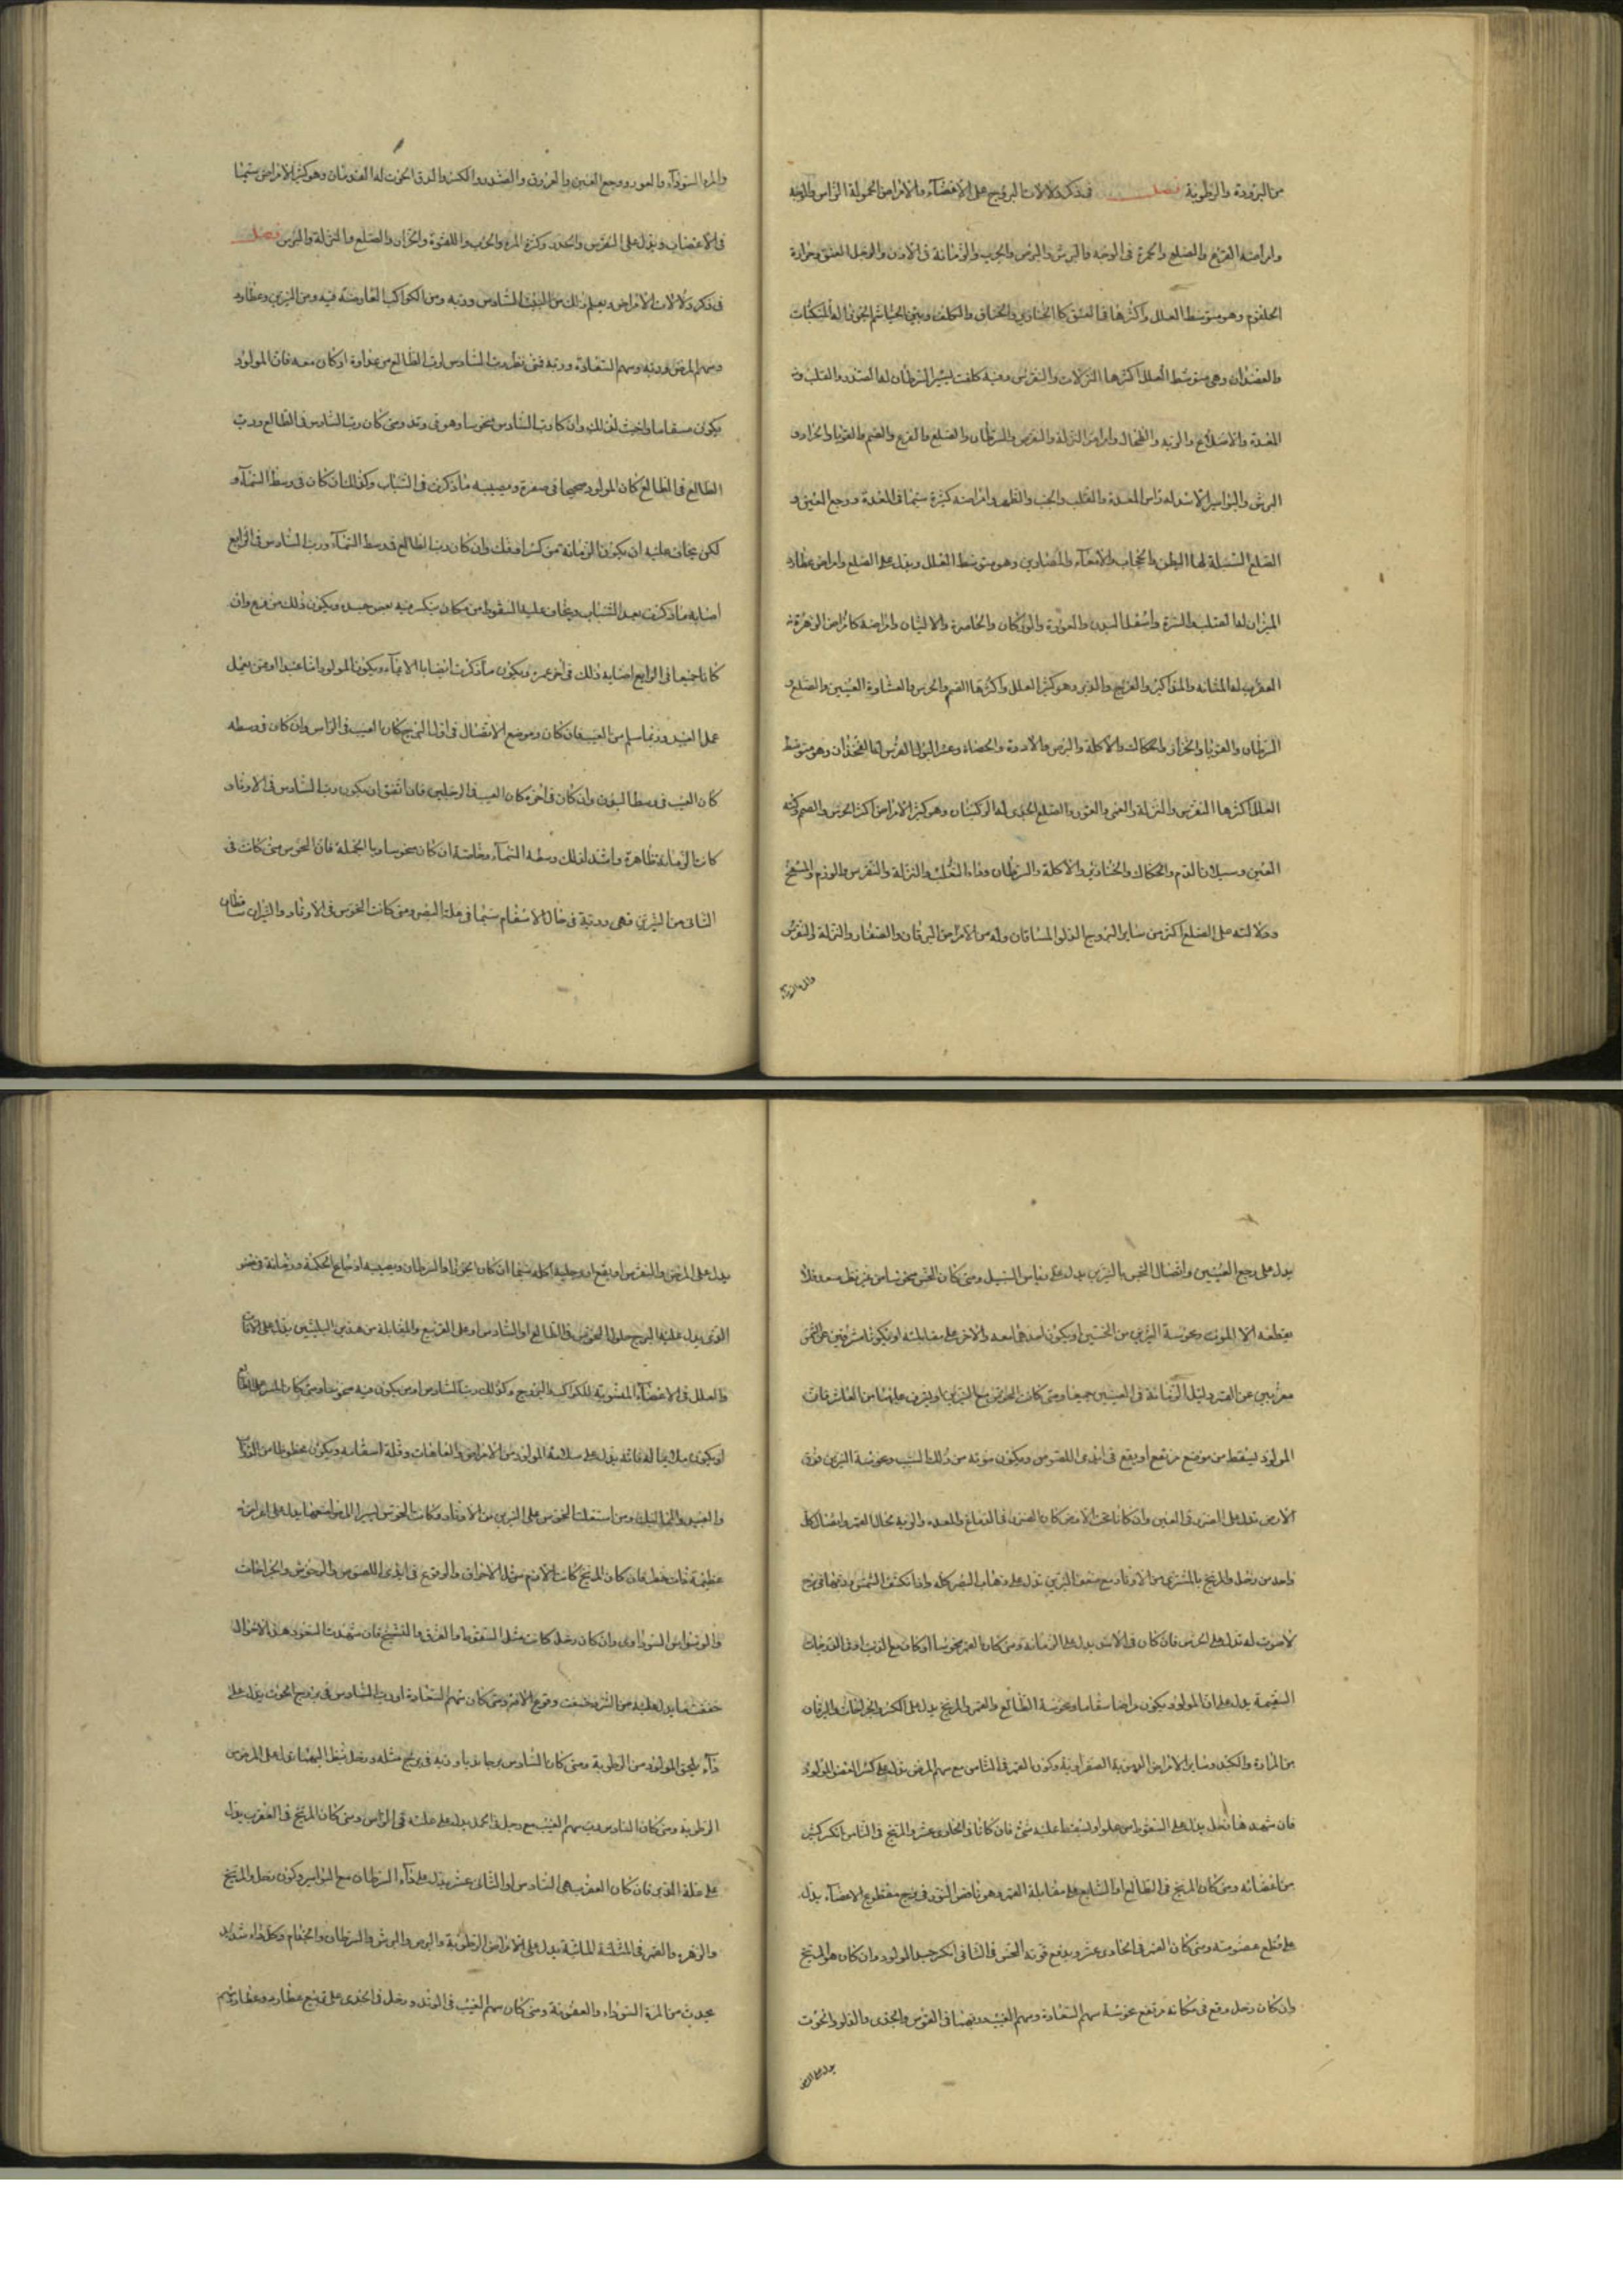 من البرودة والرطوبة فصل في ذكر دلالات البروج على الاعضاء والامراض الحمل له الراس والوجه
وامراضه القرع والصلع والحمرة في الوجه والبرش والبرص والجرب والزمانة في الاذن والرجل العنق وخرزة
الحلقوم وهو متوسط العلل واكثرها في العنق كالخنازير والخناق والكلف ونتن الخياشيم الجوزا لها المنكبان
والعضدان وهي متوسط العلل اكثرها النزلات والنقرس وفيه كلف يسير السرطان لها الصدر والقلب و
المعدة والاضلاع والرية والطحال وامراض النزلة والنقرس والسرطان والصلع والقرع والصمم والقوبا والحزاز و
البرش والبواسير الاسد له راس المعدة والقلب والجنب والظهر وامراضه كثيرة سيما في المعدة ووجع العين و
الصلع السنبلة لها البطن والحجاب والامعاء والمصارين وهو متوسط العلل ويدل على الصلع وامراض عطارد
الميزان لها الصلب والسرة واسفل البدن والعورة والوركان والخاصرة والاليتان وامراضه كامراض الزهرة
العقرب لها المثانة والمذاكير والفرج والدبر وهو كثير العلل واكثرها الصم والخرس والغشاوة العينين والصلع و
السرطان والقوبا والحزاز والحكاك والاكلة والبرص والادرة والحصاة وعسر البول القوس لها الفخذان وهو متوسط
العلل اكثرها النقرس والنزلة والعمى والعور والصلع الجدي لها الركبتان وهو كثير الامراض اكثر الخرس والصم وكنه
العين وسيلان الدم والحكاك والخنازير والاكلة والسرطان وداء الثعلب والنزلة والنقرس والورم والتشنج
ودلالته على الصلع اكثر من ساير البروج الدلو الساقان وله من الامراض اليرقان والصفار والنزلة والنقرس
والمرة السوداء
والمرة السوداء والعور ووجع العين والعروق والصدر والكسر والدق الحوت له القدمان وهو كثير الامراض سيما
في الاعصاب ويدل على النقرس والخدر وكثرة المرة والجرب واللقوة والحزاز والصلع والنزلة والبرص فصل
في ذكر دلالات الامراض ويعلم ذلك من البيت السادس وربه ومن الكواكب العارضة فيه ومن النيرين وعطارد
وسهم المرض وربه وسهم السعادة وربه فمتى نظر رب السادس لرب الطالع من عداوة او كان معه فان المولود
يكون مسقاما واخبث لذلك وان كان رب السادس منحوسا وهو في وتد ومتى كان رب السادس في الطالع ورب
الطالع في الطالع كان المولود صحيحا في صغره ويصيبه ما ذكرت في الشباب وكذلك ان كان في وسط السماء و
لكن يخاف عليه ان يكون الزمانة من كسر او فك وان كان رب الطالع في وسط السماء ورب السادس في الرابع
اصابه ما ذكرت بعد الشباب ويخاف عليه السقوط من مكان ينكسر فيه بعض جسده ويكون ذلك من فزع وان
كانا جميعا في الرابع اصابه ذلك في اخر عمره ويكون ما ذكرت ايضا بالاعياء ويكون المولود اما عبدا او من يعمل
عمل العبيد وربما سلم من العيب فان كان موضع الاتصال في اول البرج كان العيب في الراس وان كان في وسطه
كان العيب في وسط البدن وان كان في اخره كان العيب في الرجلين فان اتفق ان يكون رب السادس في الاوتاد
كانت الزمانة ظاهرة واشد لذلك وسط السماء وخاصة ان كان منحوسا وبالجملة فان النحوس متى كانت في
الثاني من النيرين فهي ردية في حال الاسقام سيما في علة البصر ومتى كانت النحوس في الاوتاد والنيران ساقطان
يدل على وجع العينين واتصال النحس بالنيرين يدل على بياض السبل ومتى كان النحس منحوسا من غير نظر سعد فلا
يقطعه الا الموت ونحوسة النيرين من النحسين او يكون احدهما معه والاخر على مقابلته او يكونا مشرقين عن الشمس
مغربين عن القمر دليل الزمانة في العينين جميعا ومتى كانت النحوس مع النيرين او يشرف عليهما من العاشر فان
المولود يسقط من موضع مرتفع او يقع في ايدي اللصوص ويكون موته من ذلك السبب ونحوسة النيرين فوق
الارض تدل على الضرر في العين وان كانا تحت الارض كان الضرر في الدماغ والمعدة والرية بحال القمر واتصال كل
واحد من زحل والمريخ بالمشتري من الاوتاد مع ضعف النيرين تدل على ذهاب البصر كله واذا انكسف الشمس وربها في برج
لا صوت له تدل على الخرس فان كان في الاسد يدل على الزمانة ومتى كان القمر منحوسا او كان مع الذنب او في الدرجات
السقيمة يدل على ان المولود يكون مراضا سقاما ونحوسة الطالع والقمر والمريخ يدل على الكسر والجراحات واليرقان
من المرارة والكبد وساير الامراض الدموية الصفراوية وكون القمر في الثامن مع سهم المرض تدل على كسر العضو المولود
فان شهد هما زحل يدل على السقوط من علو او يسقط عليه شيء فان كانا في الحادي عشر والمريخ في الثامن انكسر كثير
من اعضائه ومتى كان المريخ في الطالع او السابع على مقابلة القمر وهو ناقص النور في برج مقطوع الاعضاء يدل
على قطع عضو منه ومتى كان القمر في الحادي عشر ويدفع قوته النحس في الثاني انكسر جسد المولود وان كان هو المريخ
وان كان زحل وقع في مكانه مرتفع نحوسة سهم السعادة وسهم الغيب وربهما في القوس والجدي والدلو والحوت
يدل على المرض
يدل على المرض والنقرس او يقع في رجليه اكلة سيما ان كان الجوزا والسرطان ويصيبه اوجاع الحكة وزمانة في عضو
الذي يدل عليه البرج حلول النحوس في الطالع او السادس او على التربيع والمقابلة من هذين البيتين يدل على الآفات
والعلل في الاعضاء المنسوبة للكواكب والبروج وكذلك رب السادس او من يكون فيه منحوسا ومتى كان المشتري في الطالع
او يكون ملايما له فانه يدل على سلامة المولود من الامراض والعاهات وقلة اسقامه ويكون محظوظا من الدواب
والعبيد والمماليك ومن استعلت النحوس على النيرين من الاوتاد وكانت النحوس ليس الارض لبعضها يدل على امراض
عظيمة ذات خطر فان كان المريخ كانت الالام مثل الاحراق والوقوع في ايدي اللصوص والوحوش والجراحات
والوسواس السوداوي وان كان زحل كانت مثل السقوط والغرق والتشنج فان شهدت السعود هذه الاحوال
خففت مما يدل عليه من الشر وخففت وقوع الامر ومتى كان سهم السعادة او رب السادس في برج الحوت يدل على
داء يلحق المولود من الرطوبة ومتى كان السادس برجا مائيا وربه في برج مثله وزحل ينظر اليهما يدل على المرض من
الرطوبة ومتى كان السادس رب سهم الغيب مع زحل في الحمل يدل على علة في الراس ومتى كان المريخ في العقرب يدل
على علة الدبر فان كان العقرب هي السادس او الثاني عشر يدل على داء السرطان مع البواسير وكون زحل والمريخ
والزهرة والقمر في المثلثة المائية يدل على الامراض الرطوبة والبرص والبرش والسرطان والجذام وكل داء شديد
يحدث من المرة السوداء والعفونة ومتى كان سهم الغيب في الوتد وزحل في الجدي على تربيع عطارد وعطارد سهم